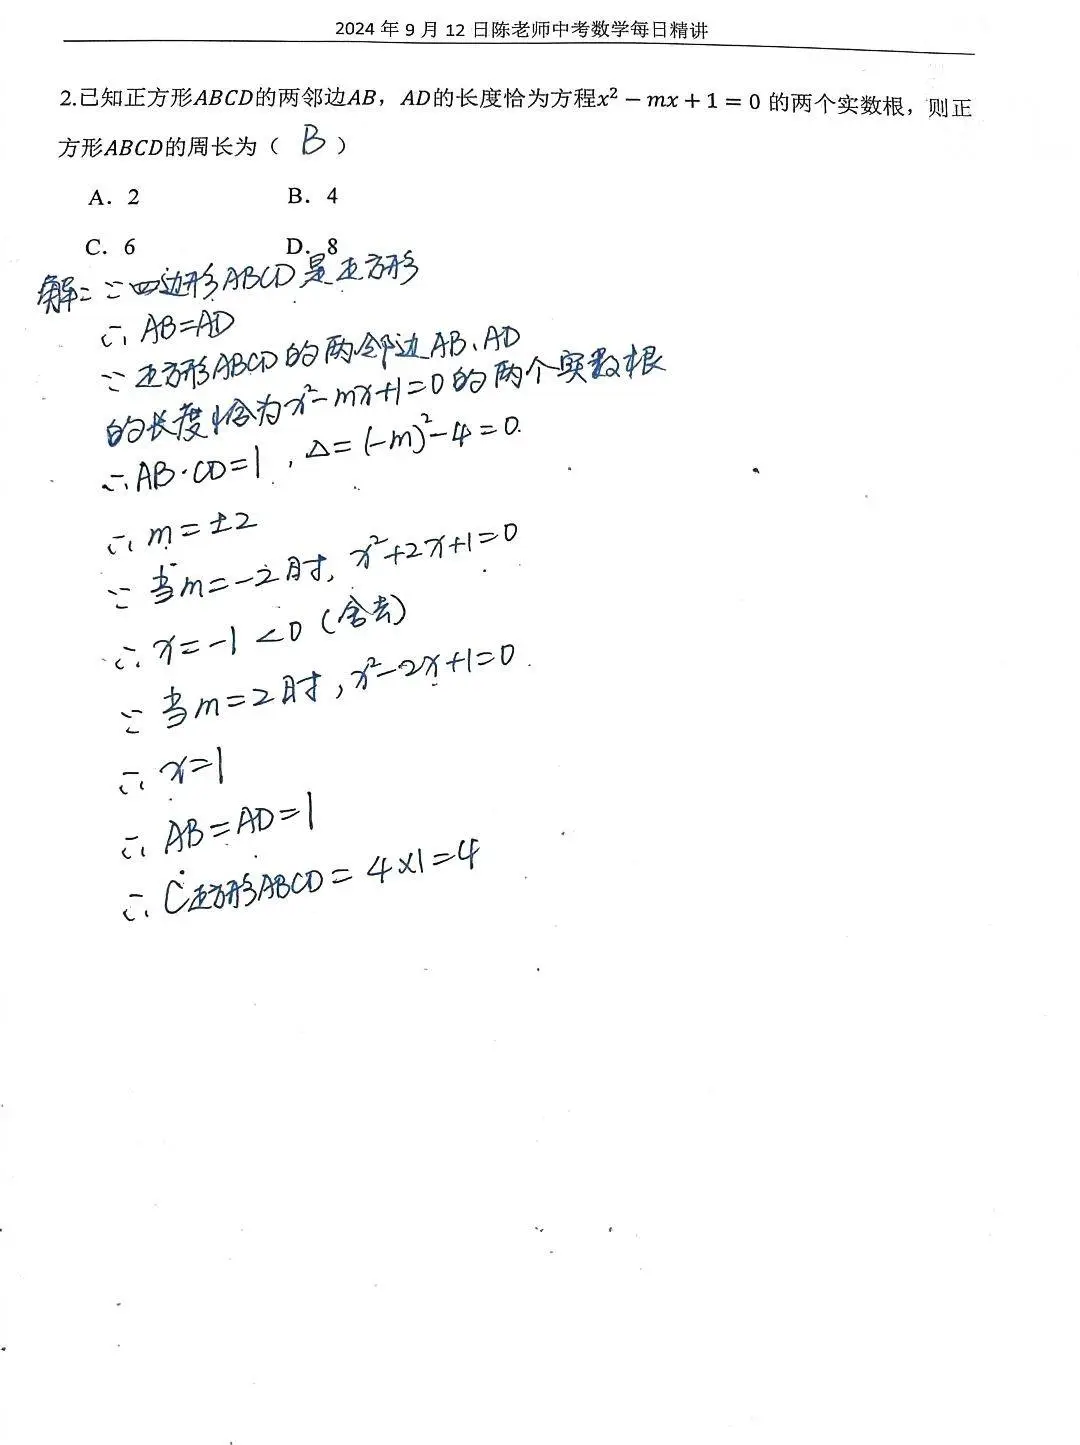 2024 年 9 月 12 日陈老师中考数学每日精讲
2.已知正方形ABCD的两邻边AB，AD的长度恰为方程x² − mx + 1 = 0 的两个实数根，则正
方形ABCD的周长为（ B ）
A．2 B．4
C．6 D．8
解：∵四边形ABCD是正方形
∴ AB=AD
∵ 正方形ABCD的两邻边AB、AD
的长度恰为x²-mx+1=0的两个实数根
∴AB·CD=1，△=(-m)²-4=0.
∴ m=±2
∵ 当m=-2时, x²+2x+1=0
∴ x=-1<0（舍去）
∵ 当m=2时, x²-2x+1=0
∴ x=1
∴ AB=AD=1
∴ C正方形ABCD=4×1=4